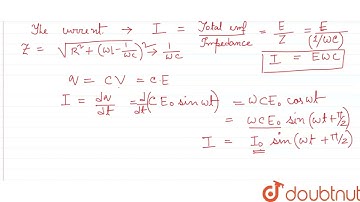 The current → I = Total emf / Impedance = E/Z = E/(1/ωC)
Z = √(R² + (ωL - 1/ωC)²) → 1/ωC
I = EωC
q = CV = CE
I = dq/dt = d/dt (CE₀ sin ωt) = ωCE₀ cos ωt
= ωCE₀ sin (ωt + π/2)
I = I₀ sin (ωt + π/2)
doubtnut